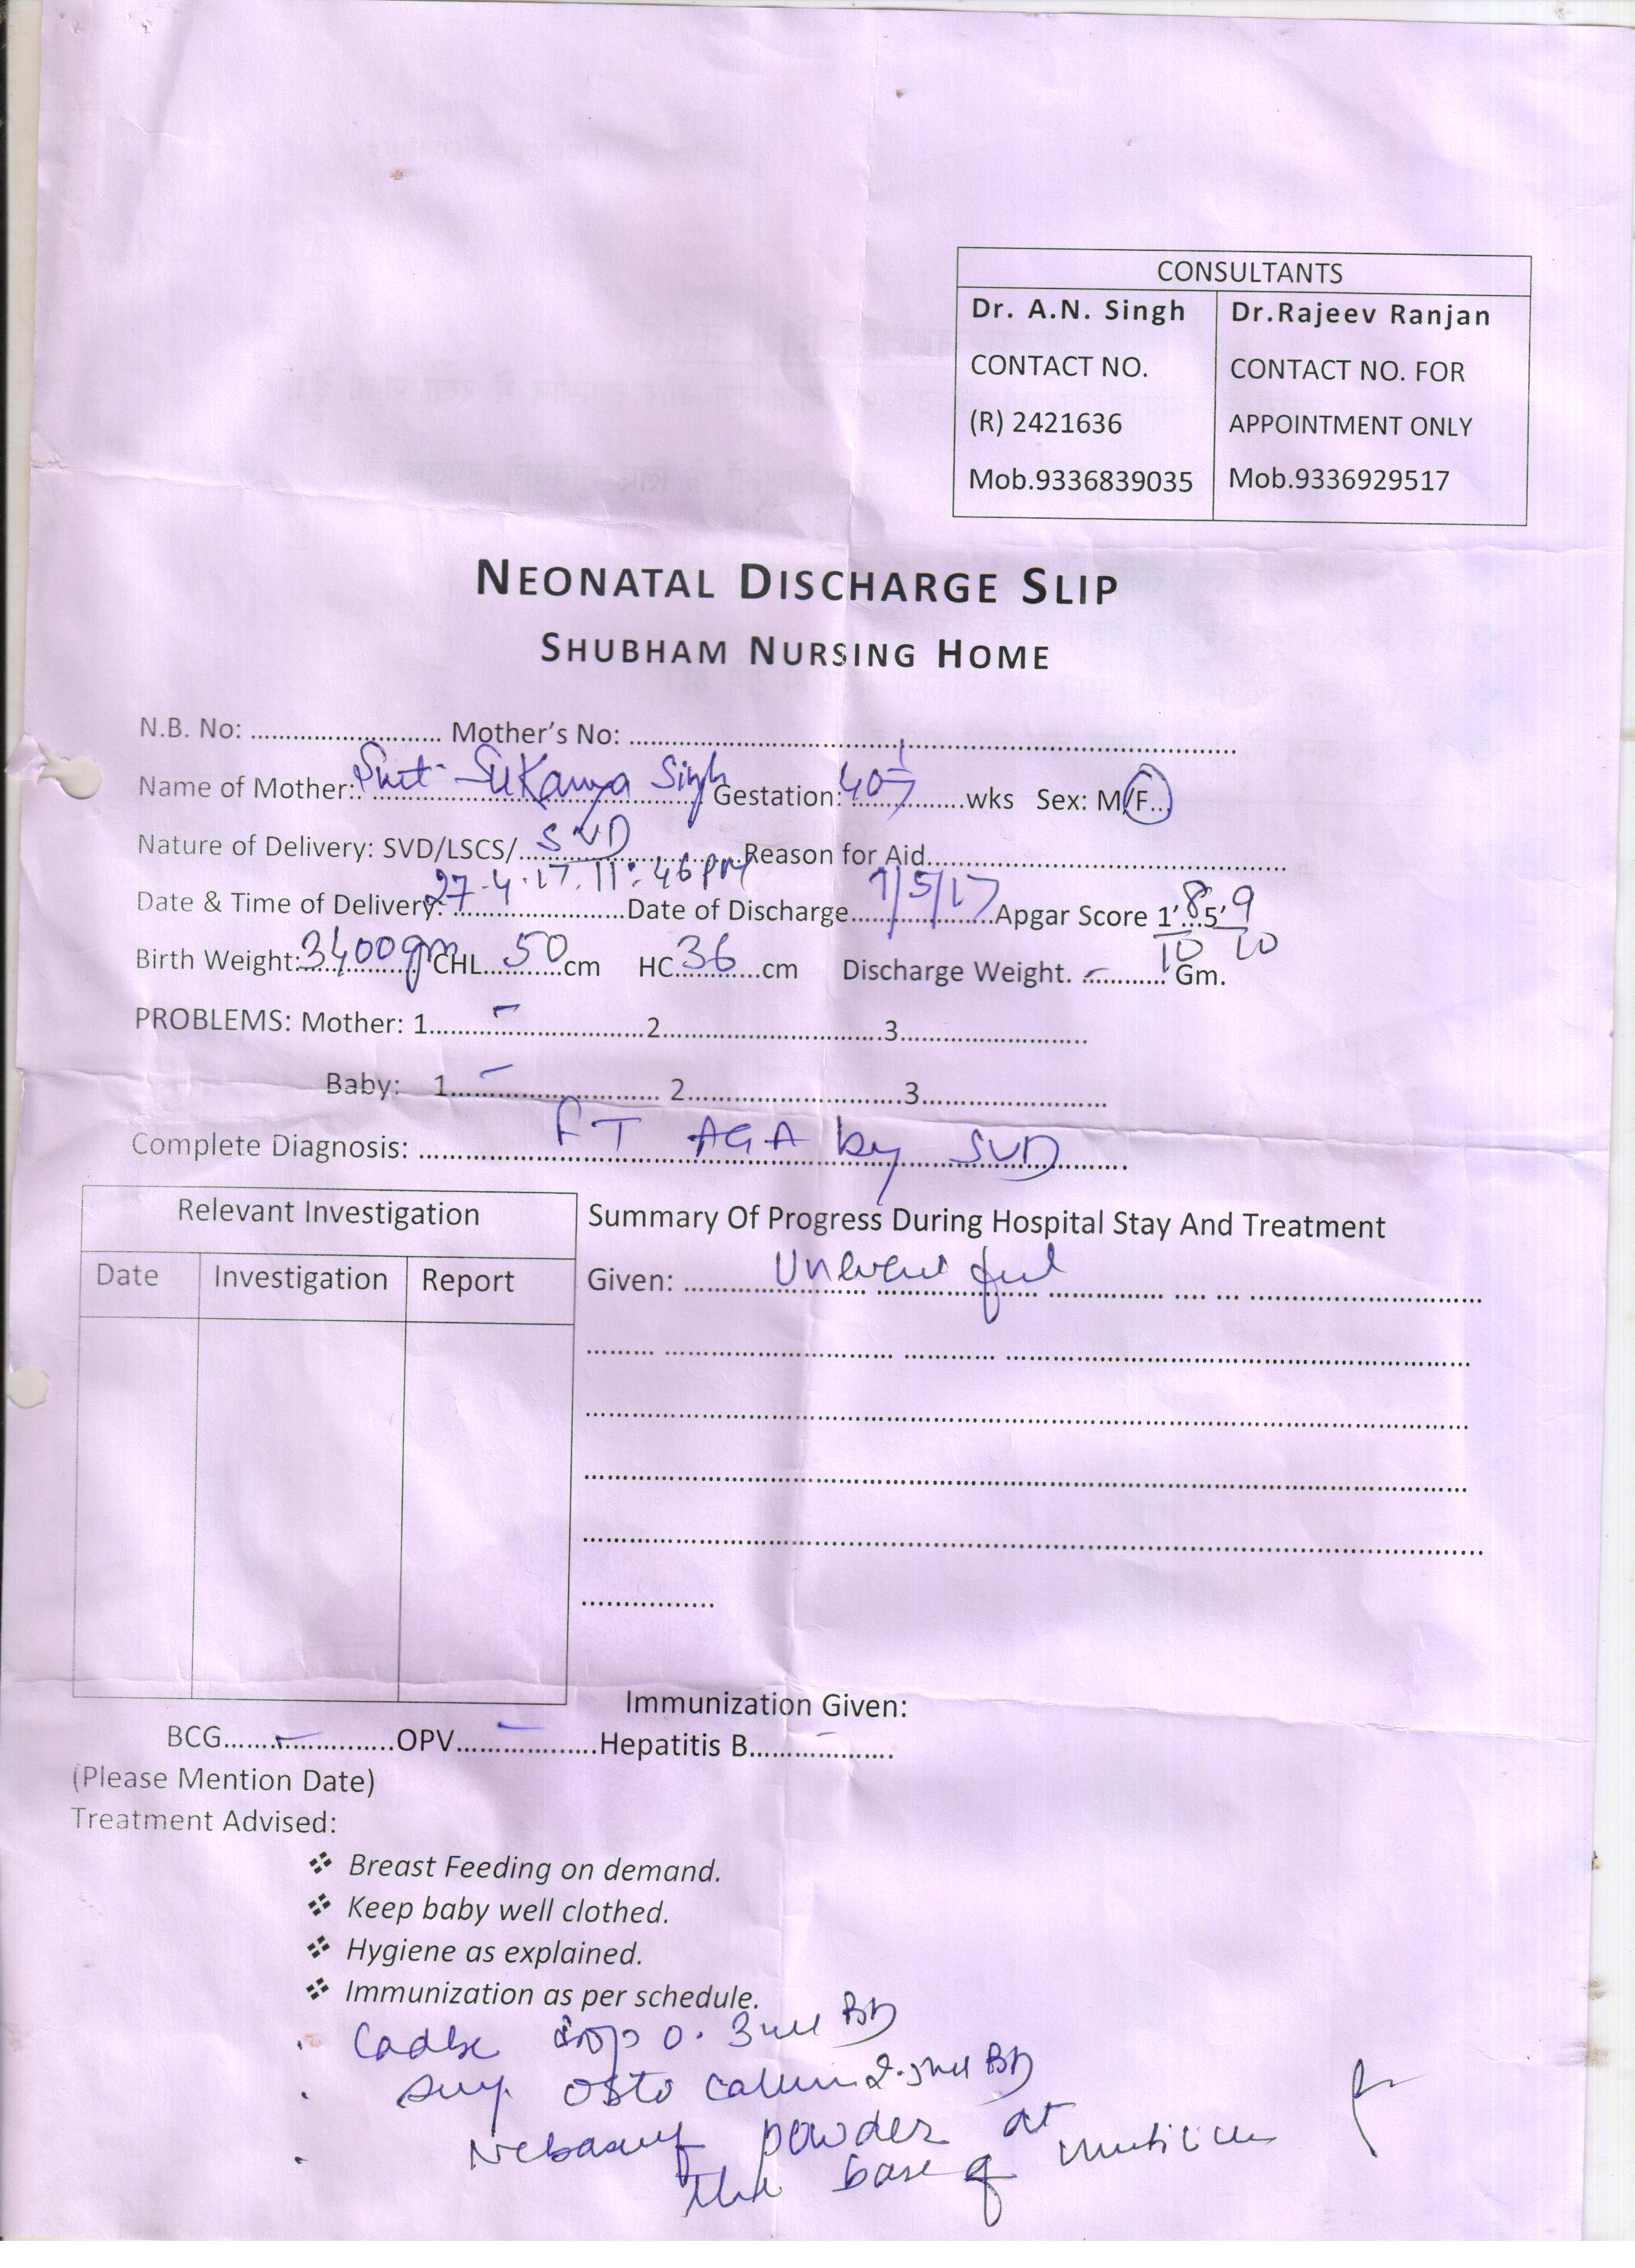 CONSULTANTS
Dr. A.N. Singh Dr.Rajeev Ranjan
CONTACT NO. CONTACT NO. FOR
(R) 2421636 APPOINTMENT ONLY
Mob.9336839035 Mob.9336929517
NEONATAL DISCHARGE SLIP
SHUBHAM NURSING HOME
N.B. No: ............................ Mother's No: ............................
Name of Mother: Smt Sukanya Singh Gestation: 40 wks Sex: M/F...
Nature of Delivery: SVD/LSCS/ SVD Reason for Aid............................
Date & Time of Delivery: 27.4.17. 11:46 PM Date of Discharge /5/17 Apgar Score 1' 8/10 5' 9/10
Birth Weight: 3400gm CHL 50 cm HC 36 cm Discharge Weight. – Gm.
PROBLEMS: Mother: 1. – 2............................3............................
Baby: 1. – 2............................3............................
Complete Diagnosis: FT AGA by SVD
Relevant Investigation
Date Investigation Report
Summary Of Progress During Hospital Stay And Treatment
Given: Uneventful
Immunization Given:
BCG – OPV – Hepatitis B –
(Please Mention Date)
Treatment Advised:
❖ Breast Feeding on demand.
❖ Keep baby well clothed.
❖ Hygiene as explained.
❖ Immunization as per schedule.
. drop 0.3ml BD
. syp. Osto calcium 2.5ml BD
. Nebasulf powder at
the base of umbilicus